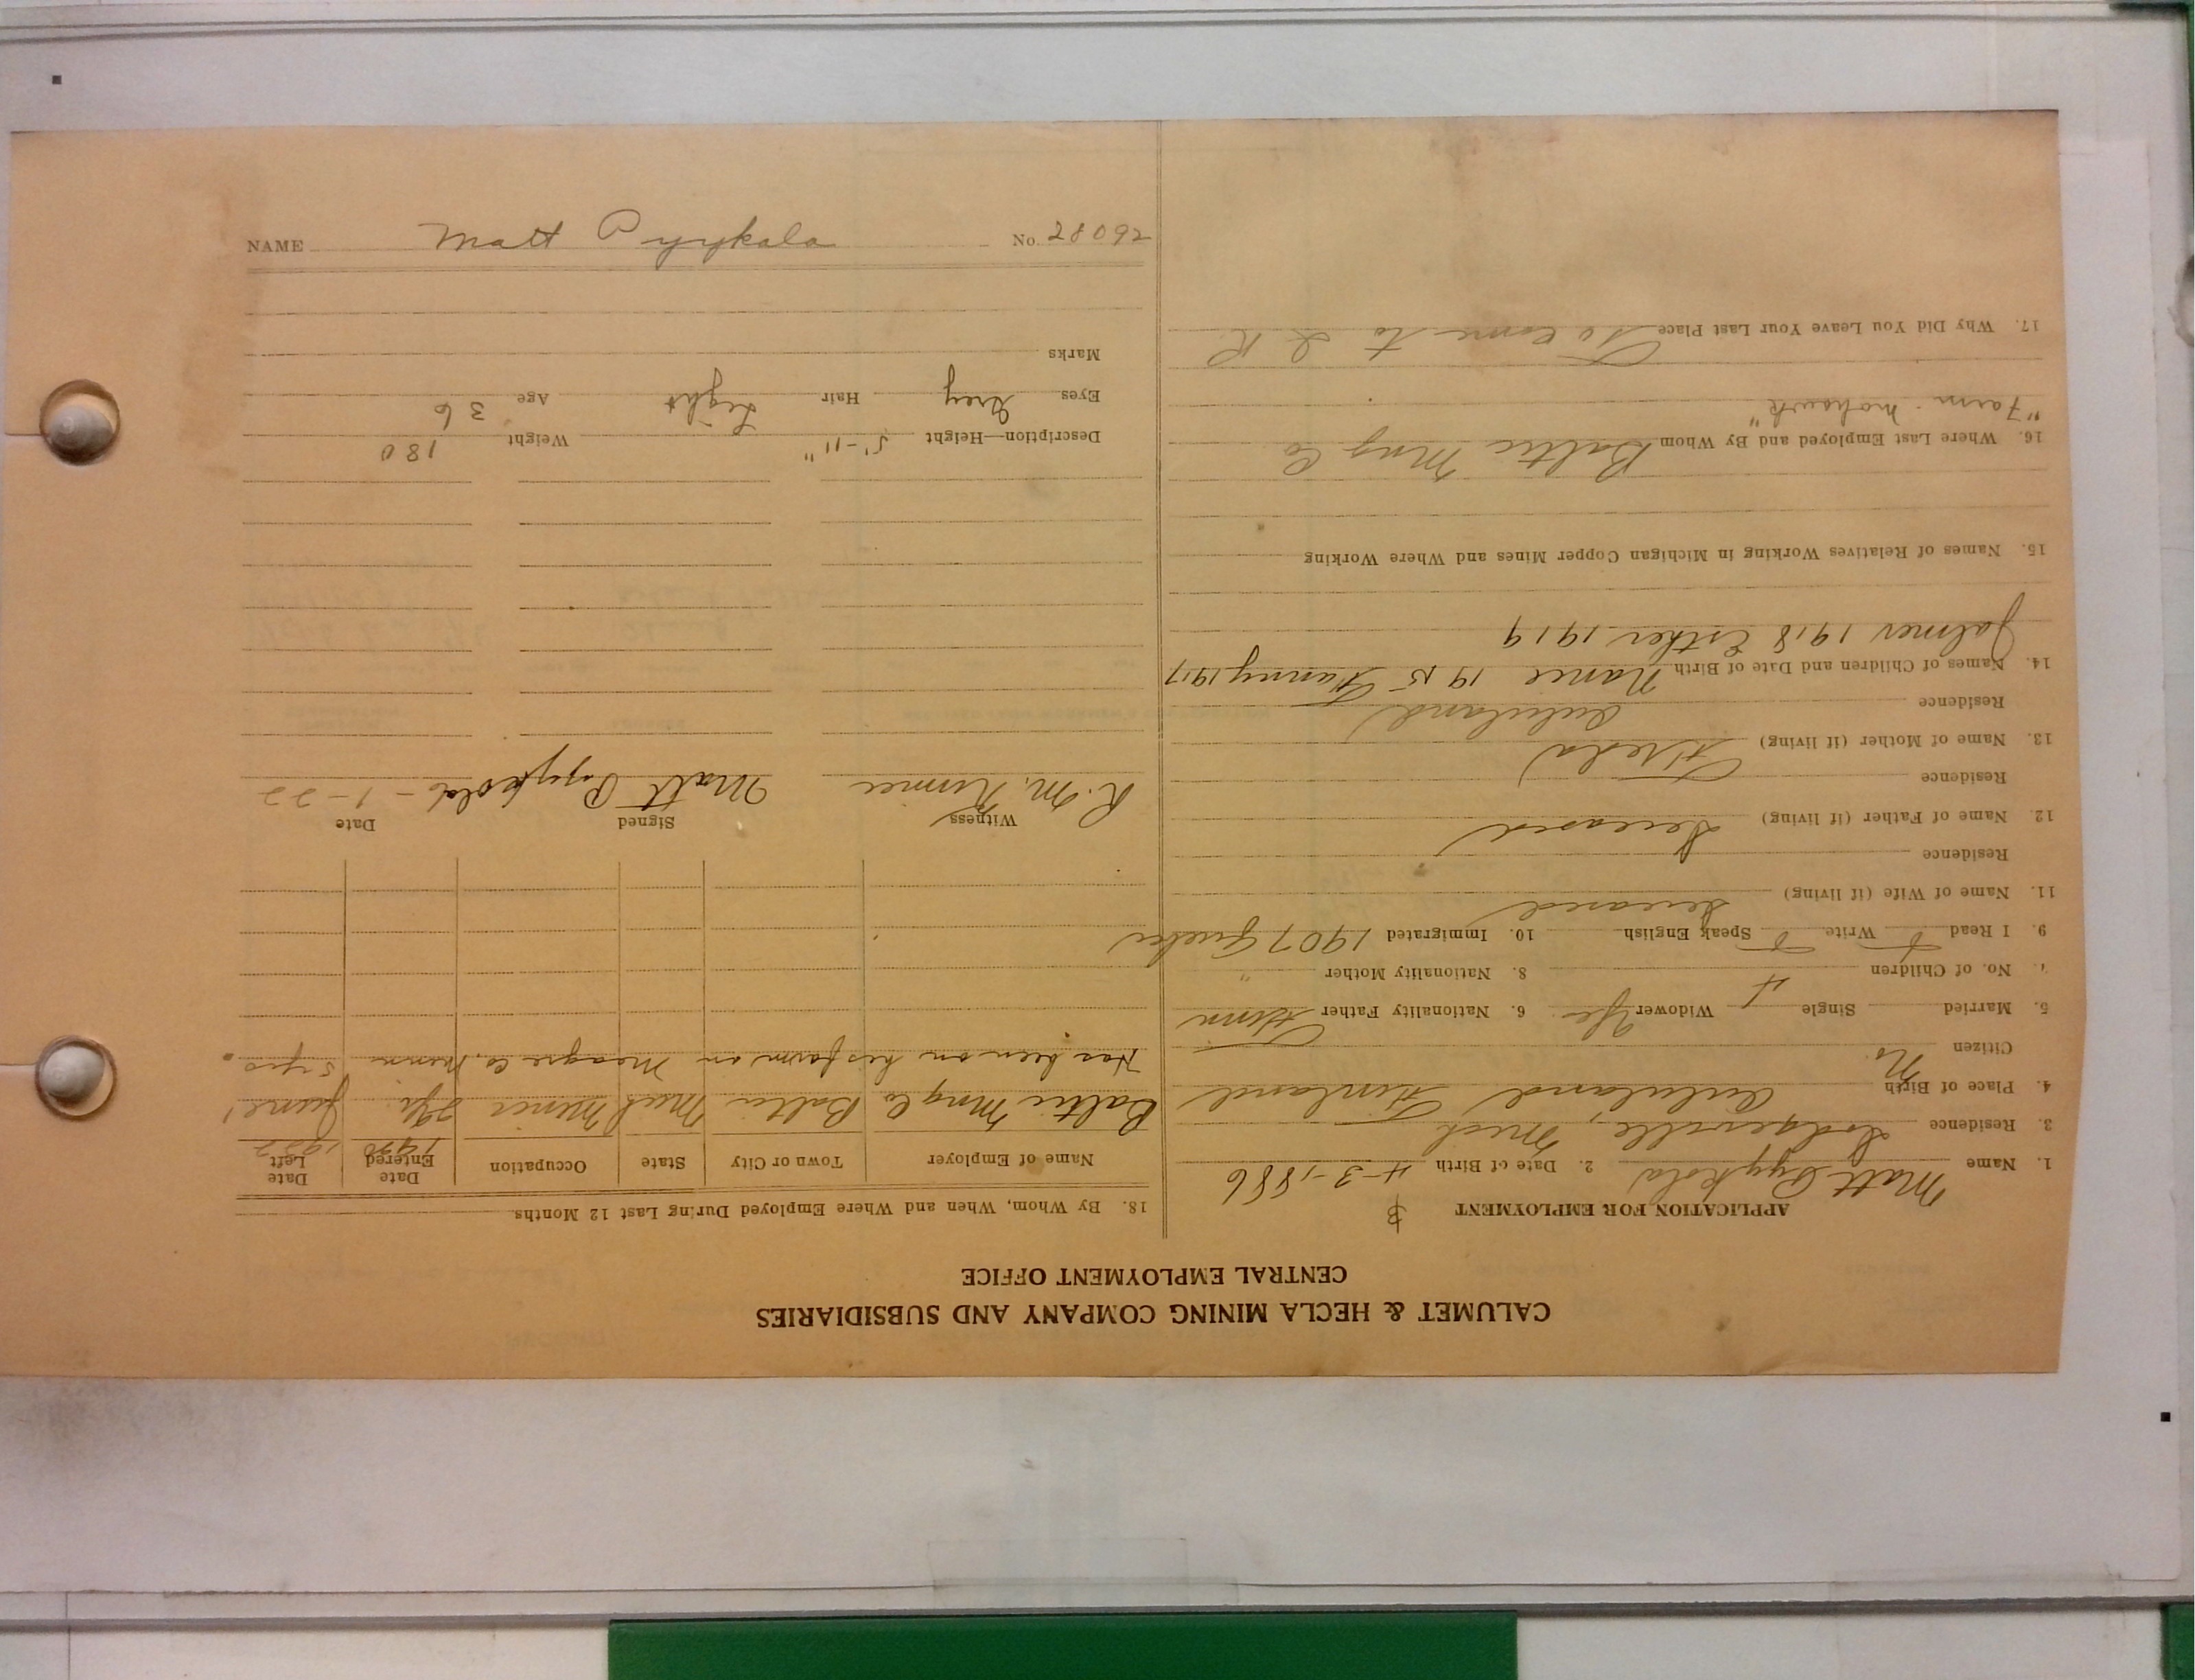 CALUMET & HECLA MINING COMPANY AND SUBSIDIARIES
CENTRAL EMPLOYMENT OFFICE
APPLICATION FOR EMPLOYMENT
1. Name Matt Pyykola 2. Date of Birth 4-3-1886
3. Residence Dodgeville, Mich
4. Place of Birth Finland
Citizen No
5. Married Single Widower Yes 6. Nationality Father Finn
7. No. of Children 4 8. Nationality Mother "
9. I Read Write Speak English 10. Immigrated 1907 Quebec
11. Name of Wife (if living) Deceased
Residence
12. Name of Father (if living) Deceased
Residence
13. Name of Mother (if living) Freda
Residence
14. Names of Children and Date of Birth Nance 1915 Fanny 1917
Jalmer 1918 Esther 1919
15. Names of Relatives Working in Michigan Copper Mines and Where Working
16. Where Last Employed and By Whom Baltic Mng Co
"Farm - Mohawk"
17. Why Did You Leave Your Last Place To come to L R
18. By Whom, When and Where Employed During Last 12 Months
Name of Employer Town or City State Occupation Date Entered Date Left
1920 1922
Baltic Mng Co Baltic Mich Miner June 1
Has been on his farm on
Witness Signed Date
Matt Pyykola -1-22
Description—Height 5'-11" Weight 180
Eyes Grey Hair Light Age 36
Marks
NAME Matt Pyykala No. 28092